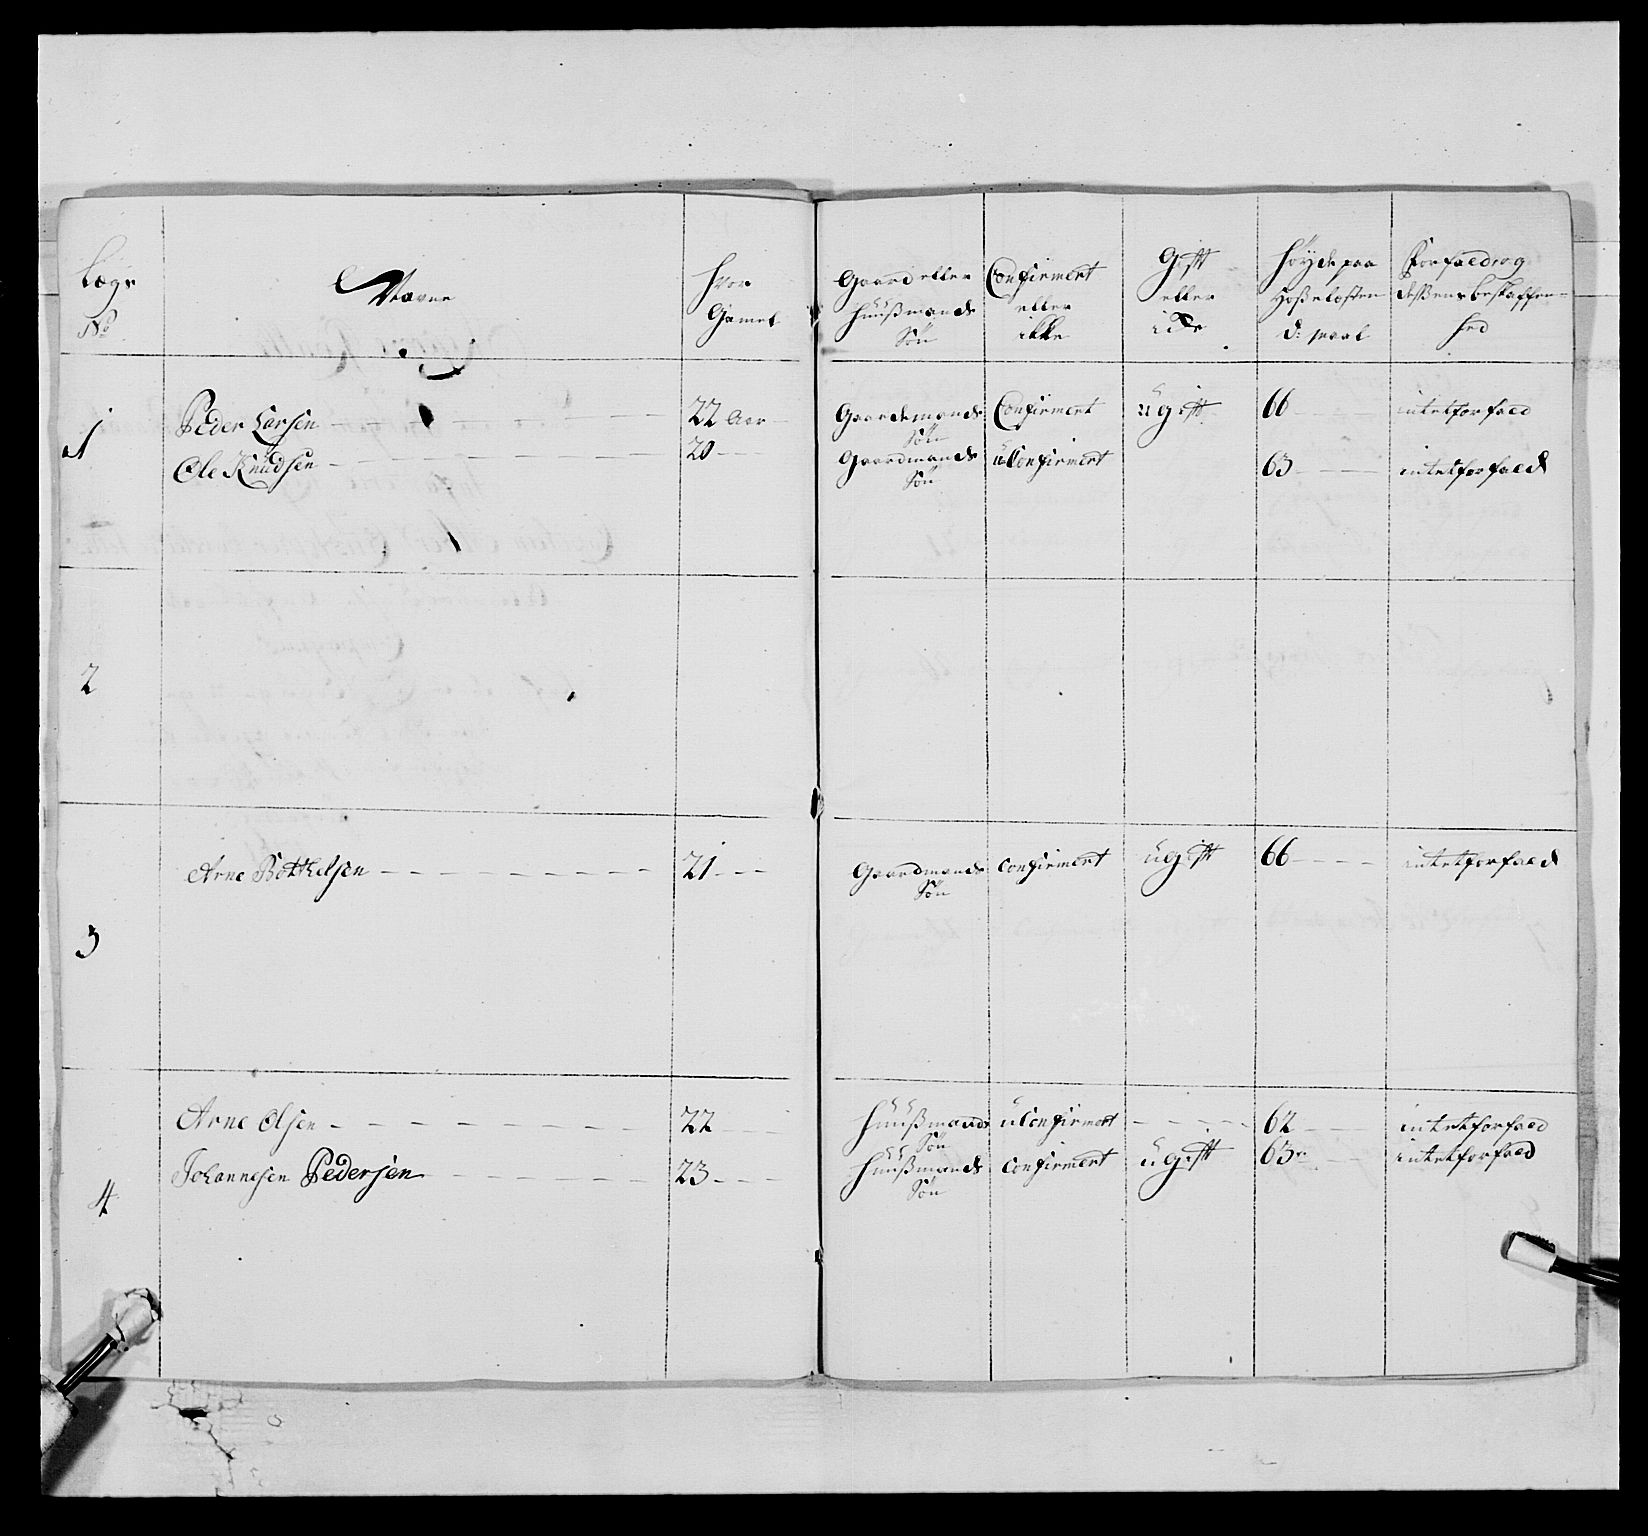 Lægs No | Navne | Hvor Gamel | Gaard eller Huusmands Søn | Confirmert eller ikke | Gift eller icke | Høyde paa Hoßelosten d: maal | Forfald og deßens beskaffenhed
1 | Peder Larsen | 22 Aar | Gaardemands Søn | Confirmert | ugift | 66 | intet forfald
Ole Knudsen | 20 | Gaardmands Søn | uConfirmert | 63 | intet forfald
2
3 | Arne Bottelsen | 21 | Gaardmands Søn | Confirmert | ugift | 66 | intet forfald
4 | Arne Olsen | 22 | Huußmands Søn | uConfirmert | 62 | intet forfald
Johannesen Pedersen | 23 | Huußmands Søn | Confirmert | ugift | 63 | intet forfald